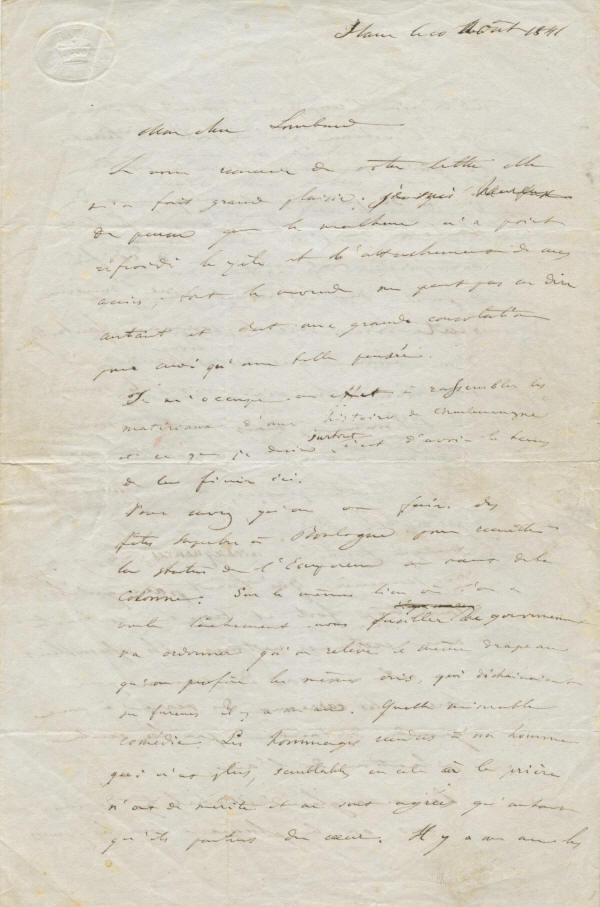 Ham le 20 Août 1841
Mon cher Lombard
Je vous remercie de votre lettre elle
m'a fait grand plaisir; je suis heureux
de penser que le malheur n'a point
refroidi le zèle et l'attachement de mes
amis; tout le monde ne peut pas en dire
autant et c'est une grande consolation
pour moi qu'une telle pensée.
Je m'occupe en effet à rassembler les
matériaux d'une histoire de Charlemagne
et ce que je désire surtout c'est d'avoir le temps
de la finir ici.
Vous savez qu'on va faire des
fêtes superbes à Boulogne pour
la statue de l'Empereur au haut de la
Colonne. Sur le même lieu où l'on a
voulu lâchement nous fusiller le gouvernement
va ordonner qu'on relève le même drapeau
qu'on profère les mêmes cris, qui
ses fureurs il y a un an. Quelle misérable
comédie. Les hommages rendus à un homme
qui n'est plus, semblables en cela à la prière
n'ont de mérite et ne sont agréés qu'autant
qu'ils partent du cœur. Il y a un an les